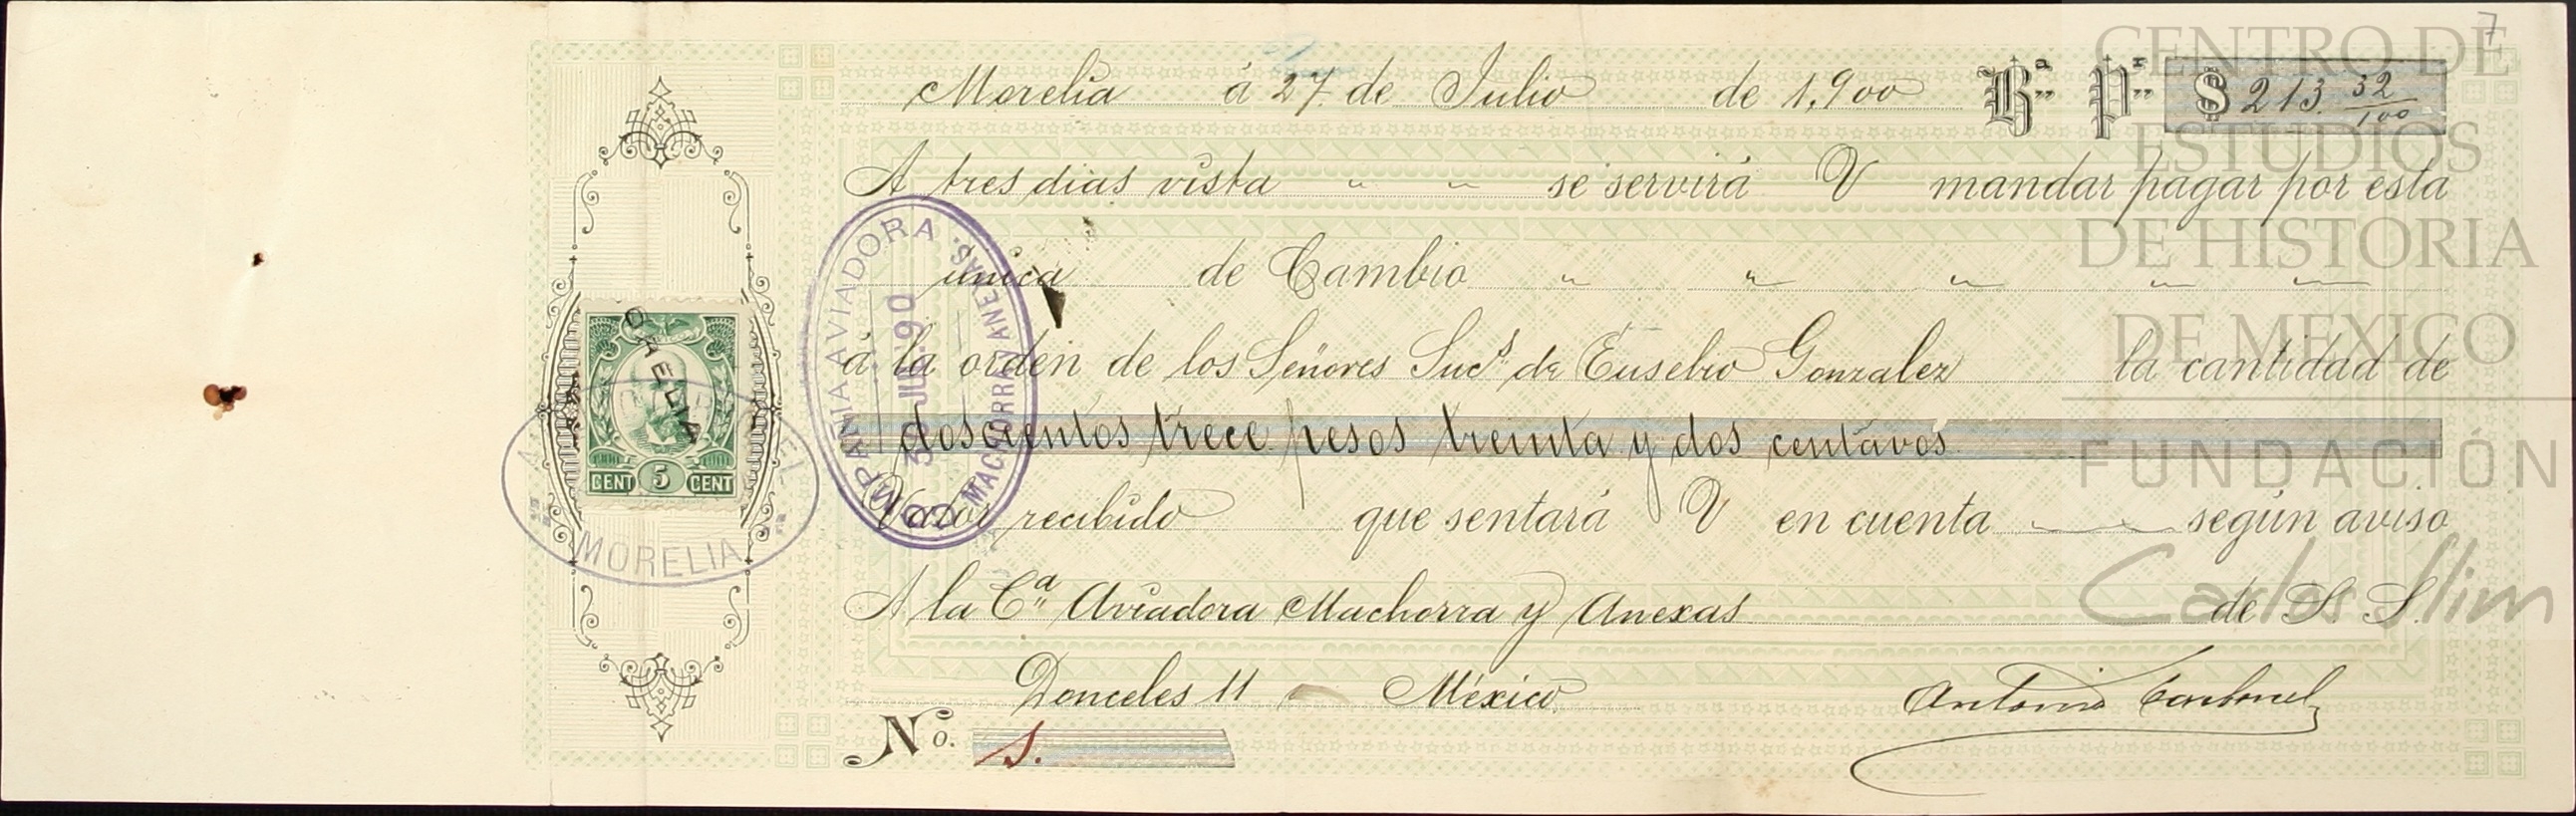 7
Morelia á 27 de Julio de 1,900 Bª Pr $ 213. 32/100
A tres dias vista " " se servirá V mandar pagar por esta
unica de Cambio " " " " "
á la orden de los Señores Sucs. de Eusebio Gonzalez la cantidad de
doscientos trece pesos treinta y dos centavos
Valor recibido que sentará V en cuenta según aviso
A la Cª Aviadora Machorra y Anexas de S. S.
Donceles 11 México
Antonio Carbonel
No. 1.
COMPAÑIA AVIADORA
30 JUL 90
MACHORRA Y ANEXAS
MORELIA
1900 1901
CENT 5 CENT
MORELIA
CENTRO DE
ESTUDIOS
DE HISTORIA
DE MEXICO
FUNDACIÓN
Carlos Slim